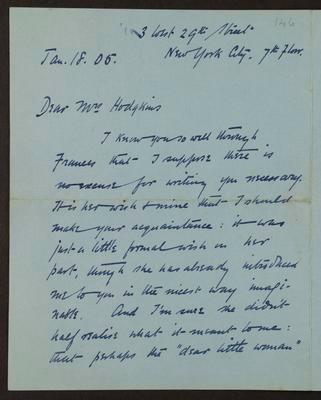 3 West 29th Street
146
Jan. 18. 05.
New York City. 7th Floor.
Dear Mrs Hodgkins
I know you so well through
Frances that I suppose there is
no excuse for writing you necessary.
It is her wish & mine that I should
make your acquaintance: it was
just a little formal wish on her
part, though she has already introduced
me to you in the nicest way imagi-
nable. And I'm sure she didn't
half realise what it meant to me:
that perhaps the "dear little woman"